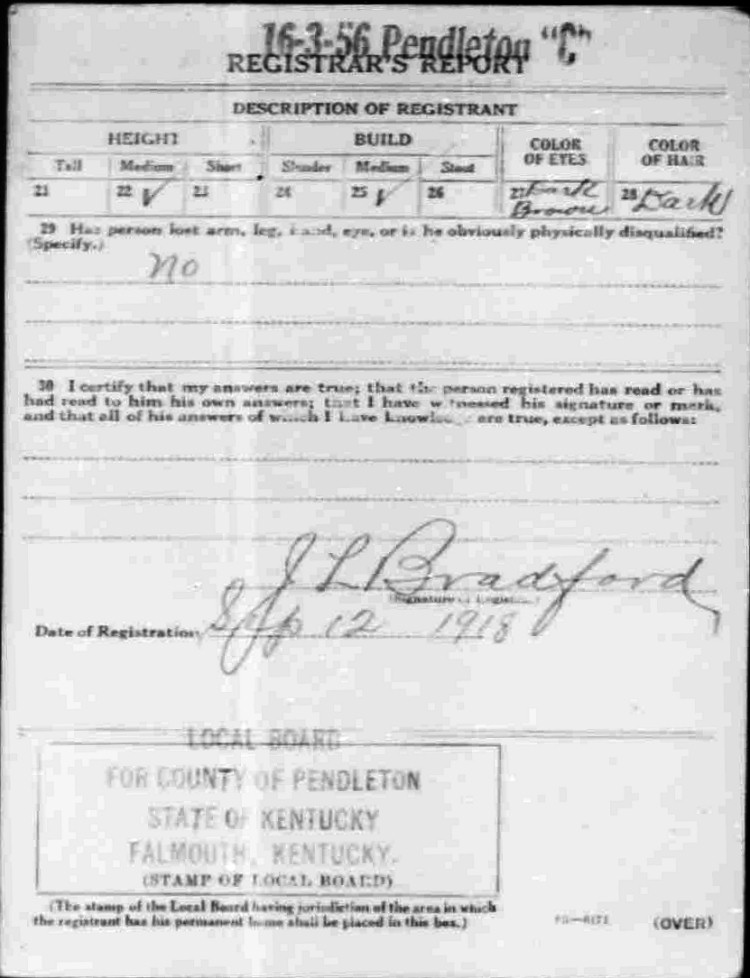 16-3-56 Pendleton "C"
REGISTRAR'S REPORT
DESCRIPTION OF REGISTRANT
HEIGHT BUILD COLOR OF EYES COLOR OF HAIR
Tall Medium Short Slender Medium Stout
21 22 ✓ 23 24 25 ✓ 26 27 Dark Brown 28 Dark
29 Has person lost arm, leg, hand, eye, or is he obviously physically disqualified?
(Specify.)
no
30 I certify that my answers are true; that the person registered has read or has
had read to him his own answers; that I have witnessed his signature or mark,
and that all of his answers of which I have knowledge are true, except as follows:
J L Bradford
(Signature of Registrar)
Date of Registration Sep 12 1918
LOCAL BOARD
FOR COUNTY OF PENDLETON
STATE OF KENTUCKY
FALMOUTH, KENTUCKY.
(STAMP OF LOCAL BOARD)
(The stamp of the Local Board having jurisdiction of the area in which
the registrant has his permanent home shall be placed in this box.)
(OVER)